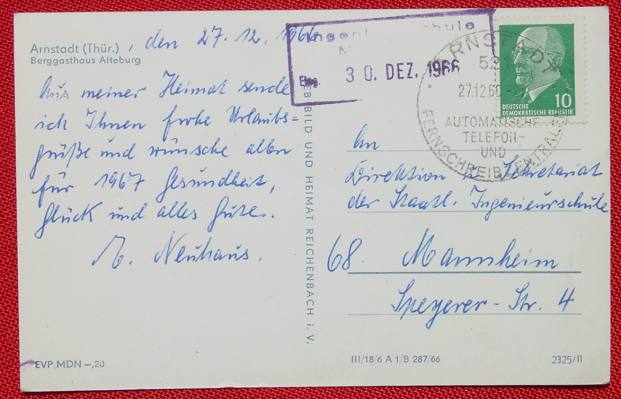 Arnstadt (Thür.), den 27. 12. 1966
Berggasthaus Alteburg
Aus meiner Heimat sende
ich Ihnen frohe Urlaubs=
grüße und wünsche allen
für 1967 Gesundheit,
Glück und alles Gute.
M. Neuhaus.
EVP MDN -,20
BILD UND HEIMAT REICHENBACH i. V.
30. DEZ. 1966
ARNSTADT
27.12.66
AUTOMATISCHE
TELEFON-
UND
FERNSCHREIBZENTRALE
DEUTSCHE
DEMOKRATISCHE REPUBLIK
10
An
Direktion Sekretariat
der Staatl. Ingenieurschule
68 Mannheim
Speyerer-Str. 4
III/18/6 A 1/B 287/66
2325/II